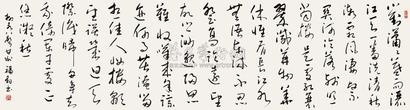 對瀟瀟暮雨灑
江天一番洗清秋
漸霜風淒緊關
河冷落殘照
當樓是處紅衰
翠減苒苒物華
休惟有長江水
無語東流不忍
登高臨遠望
故鄉渺邈歸思
難收嘆年來蹤
跡何事苦淹留
想佳人妝樓顒
望誤幾回天
際識歸舟爭知
我倚闌干處正
恁凝愁